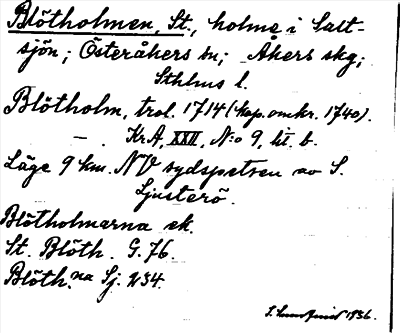 Blötholmen, St., holme i Salt-
sjön; Österåkers sn; Åkers skg;
Sthlms l.
Blötholm, trol. 1714 (kop. omkr. 1740).
— . KrA, XXII, N:o 9, lit. b.
Läge 9 km. NV sydspetsen av S.
Ljusterö.
Blötholmarna ek.
St. Blöth. G. 76.
Blöth.na Sj. 234.
1936.